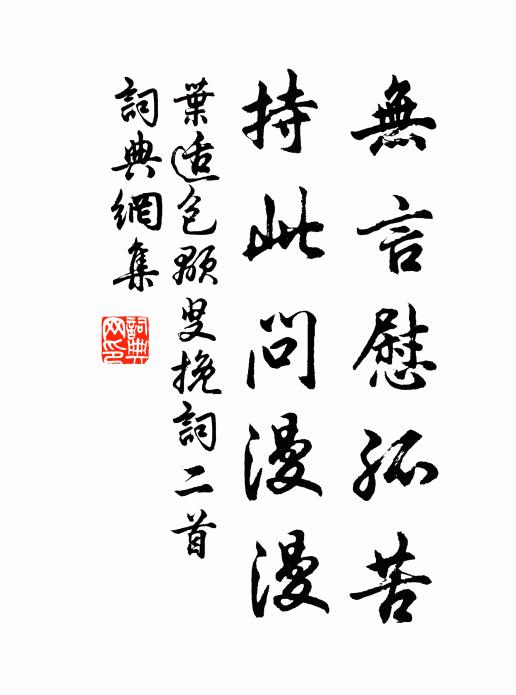 無言慰孤苦
持此問漫漫
葉适包顒叟挽詞二首
詞典網集
詞典
网印